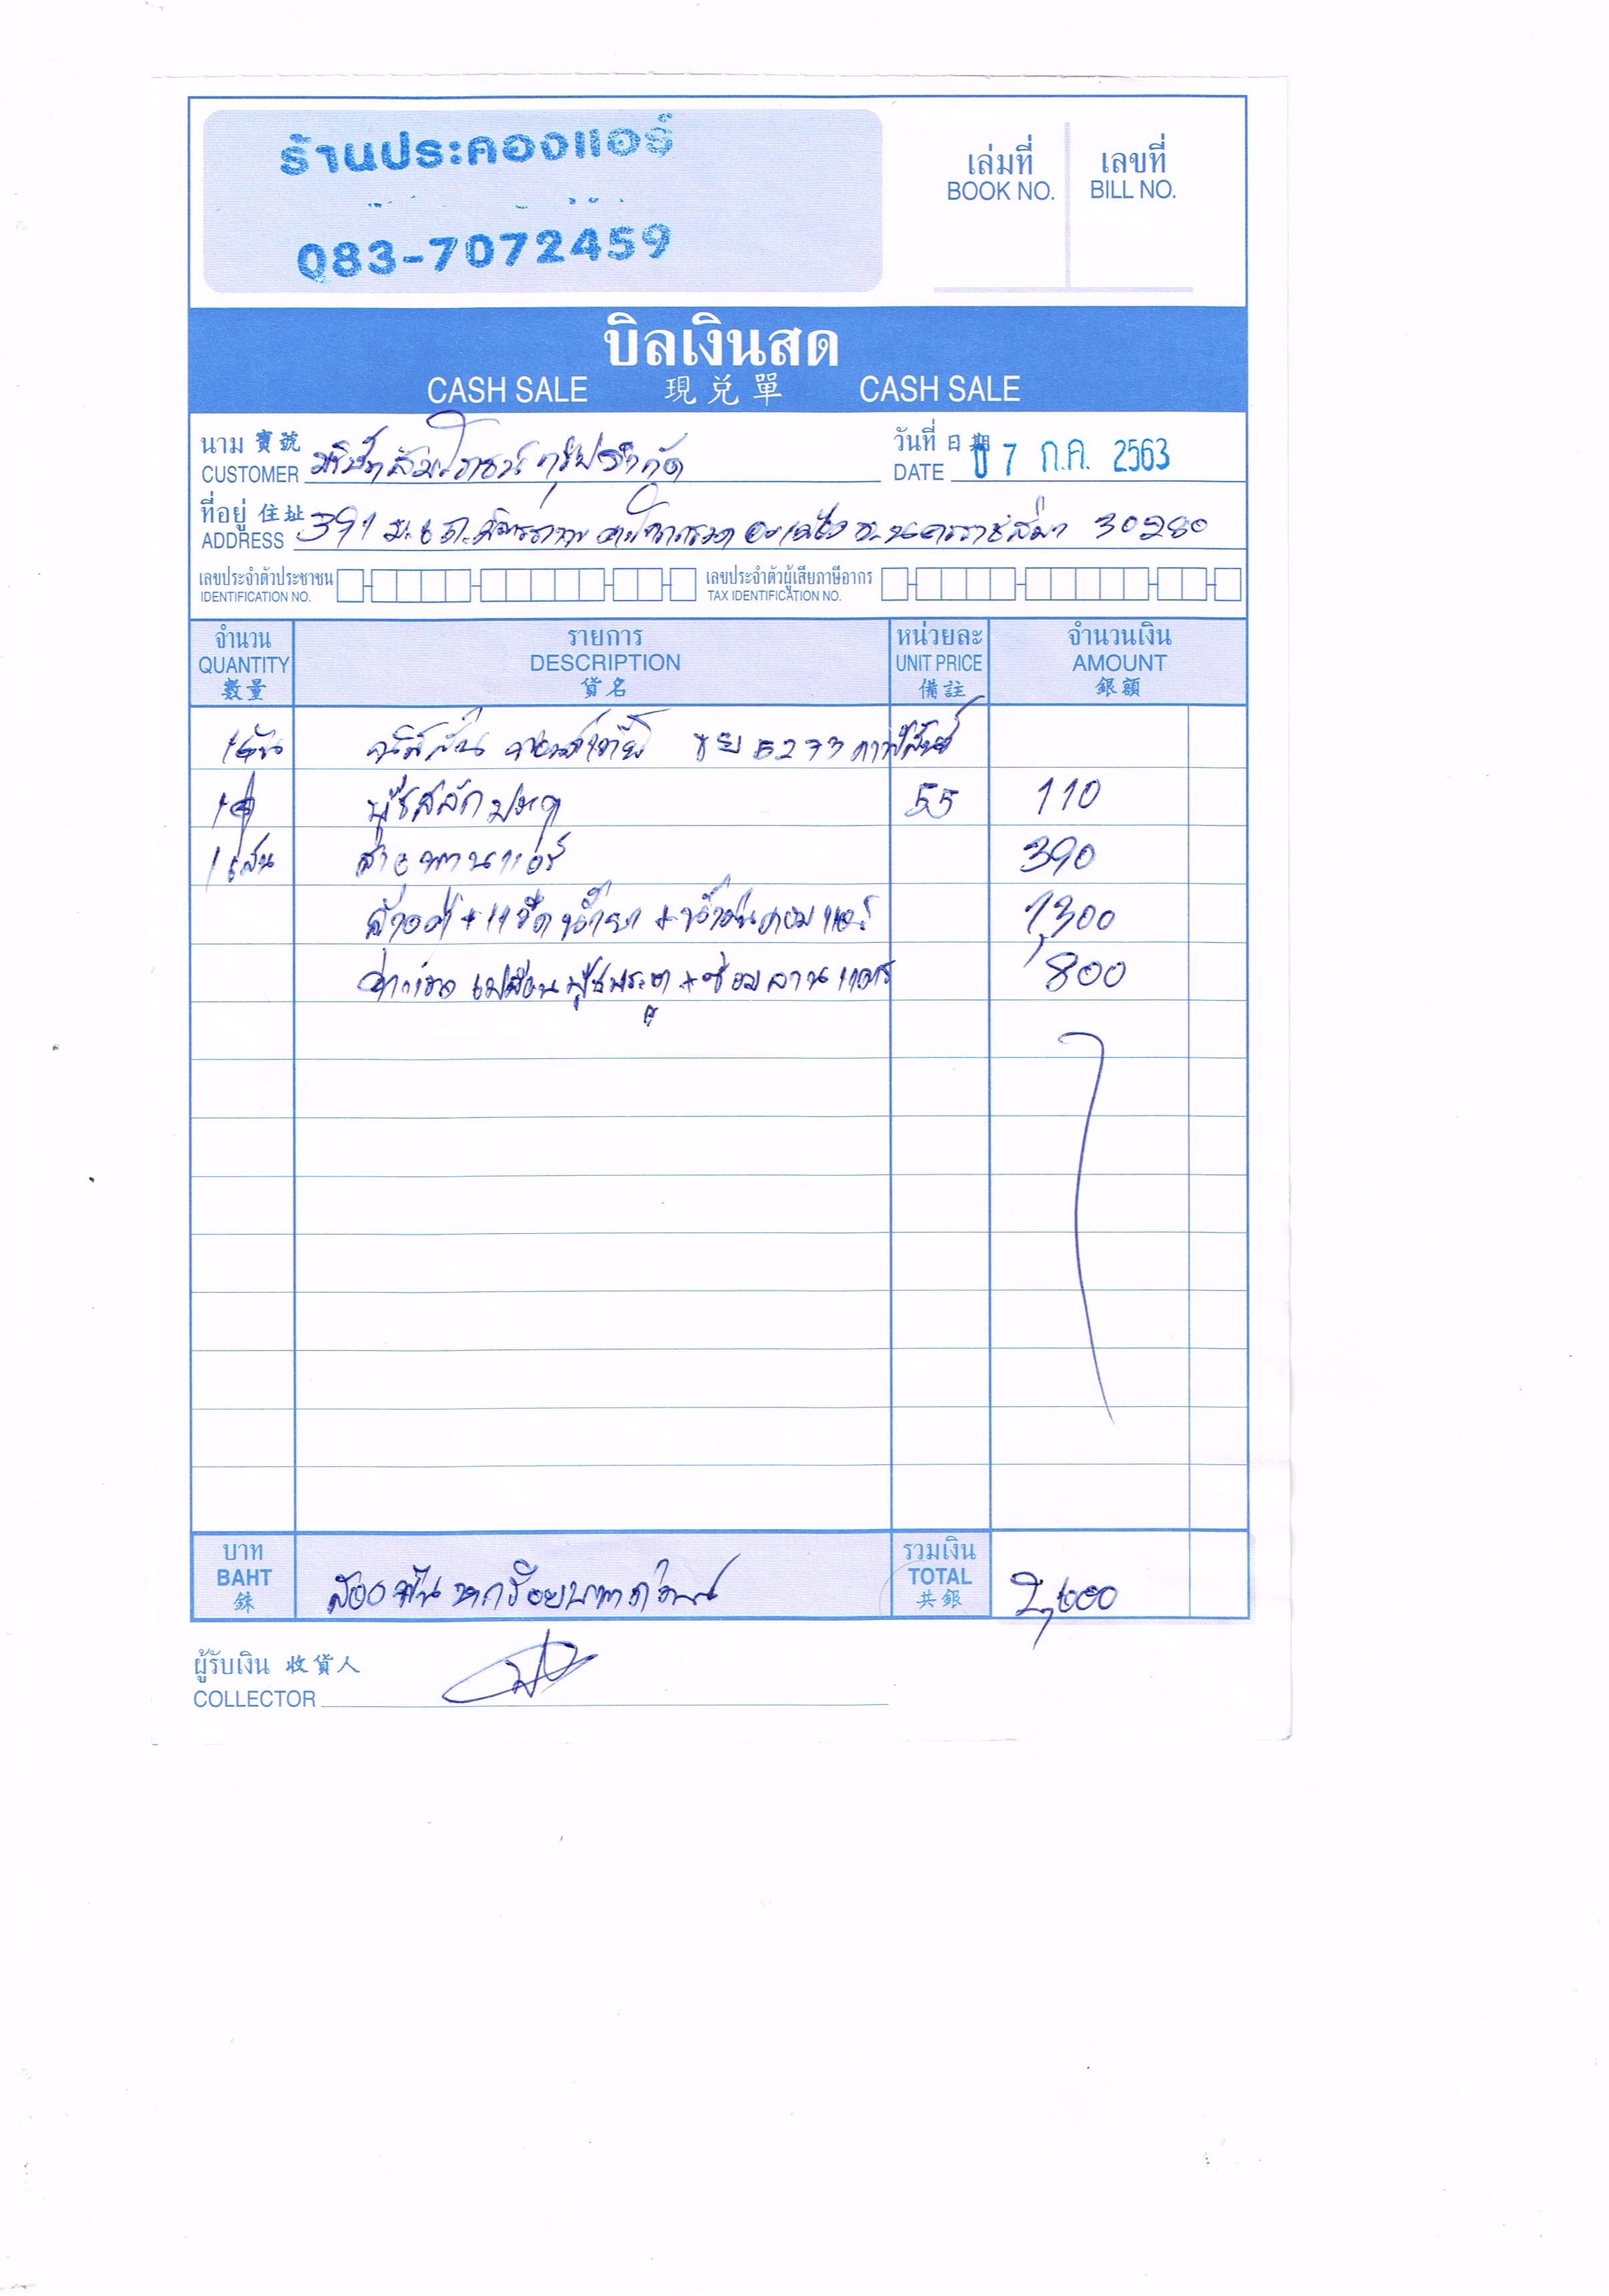 ร้านประคองแอร์
083-7072459
เล่มที่ เลขที่
BOOK NO. BILL NO.
บิลเงินสด
CASH SALE 現兌單 CASH SALE
นาม 寶號 วันที่ 日期 7 ก.ค. 2563
CUSTOMER บริษัท กรุ๊ป จำกัด DATE
ที่อยู่ 住址
ADDRESS 391 ม.6 ถ.มิตรภาพ อ.เมือง จ.นครราชสีมา 30280
เลขประจำตัวประชาชน เลขประจำตัวผู้เสียภาษีอากร
IDENTIFICATION NO. TAX IDENTIFICATION NO.
จำนวน รายการ หน่วยละ จำนวนเงิน
QUANTITY DESCRIPTION UNIT PRICE AMOUNT
數量 貨名 備註 銀額
1คัน 5273 กาฬสินธุ์
55 110
1เส้น สายพานแอร์ 390
ล้างตู้ + + แอร์ 1,300
ค่าแรง เปลี่ยน + แอร์ 800
บาท รวมเงิน
BAHT สองพันหกร้อยบาทถ้วน TOTAL 2,600
銖 共銀
ผู้รับเงิน 收貨人
COLLECTOR